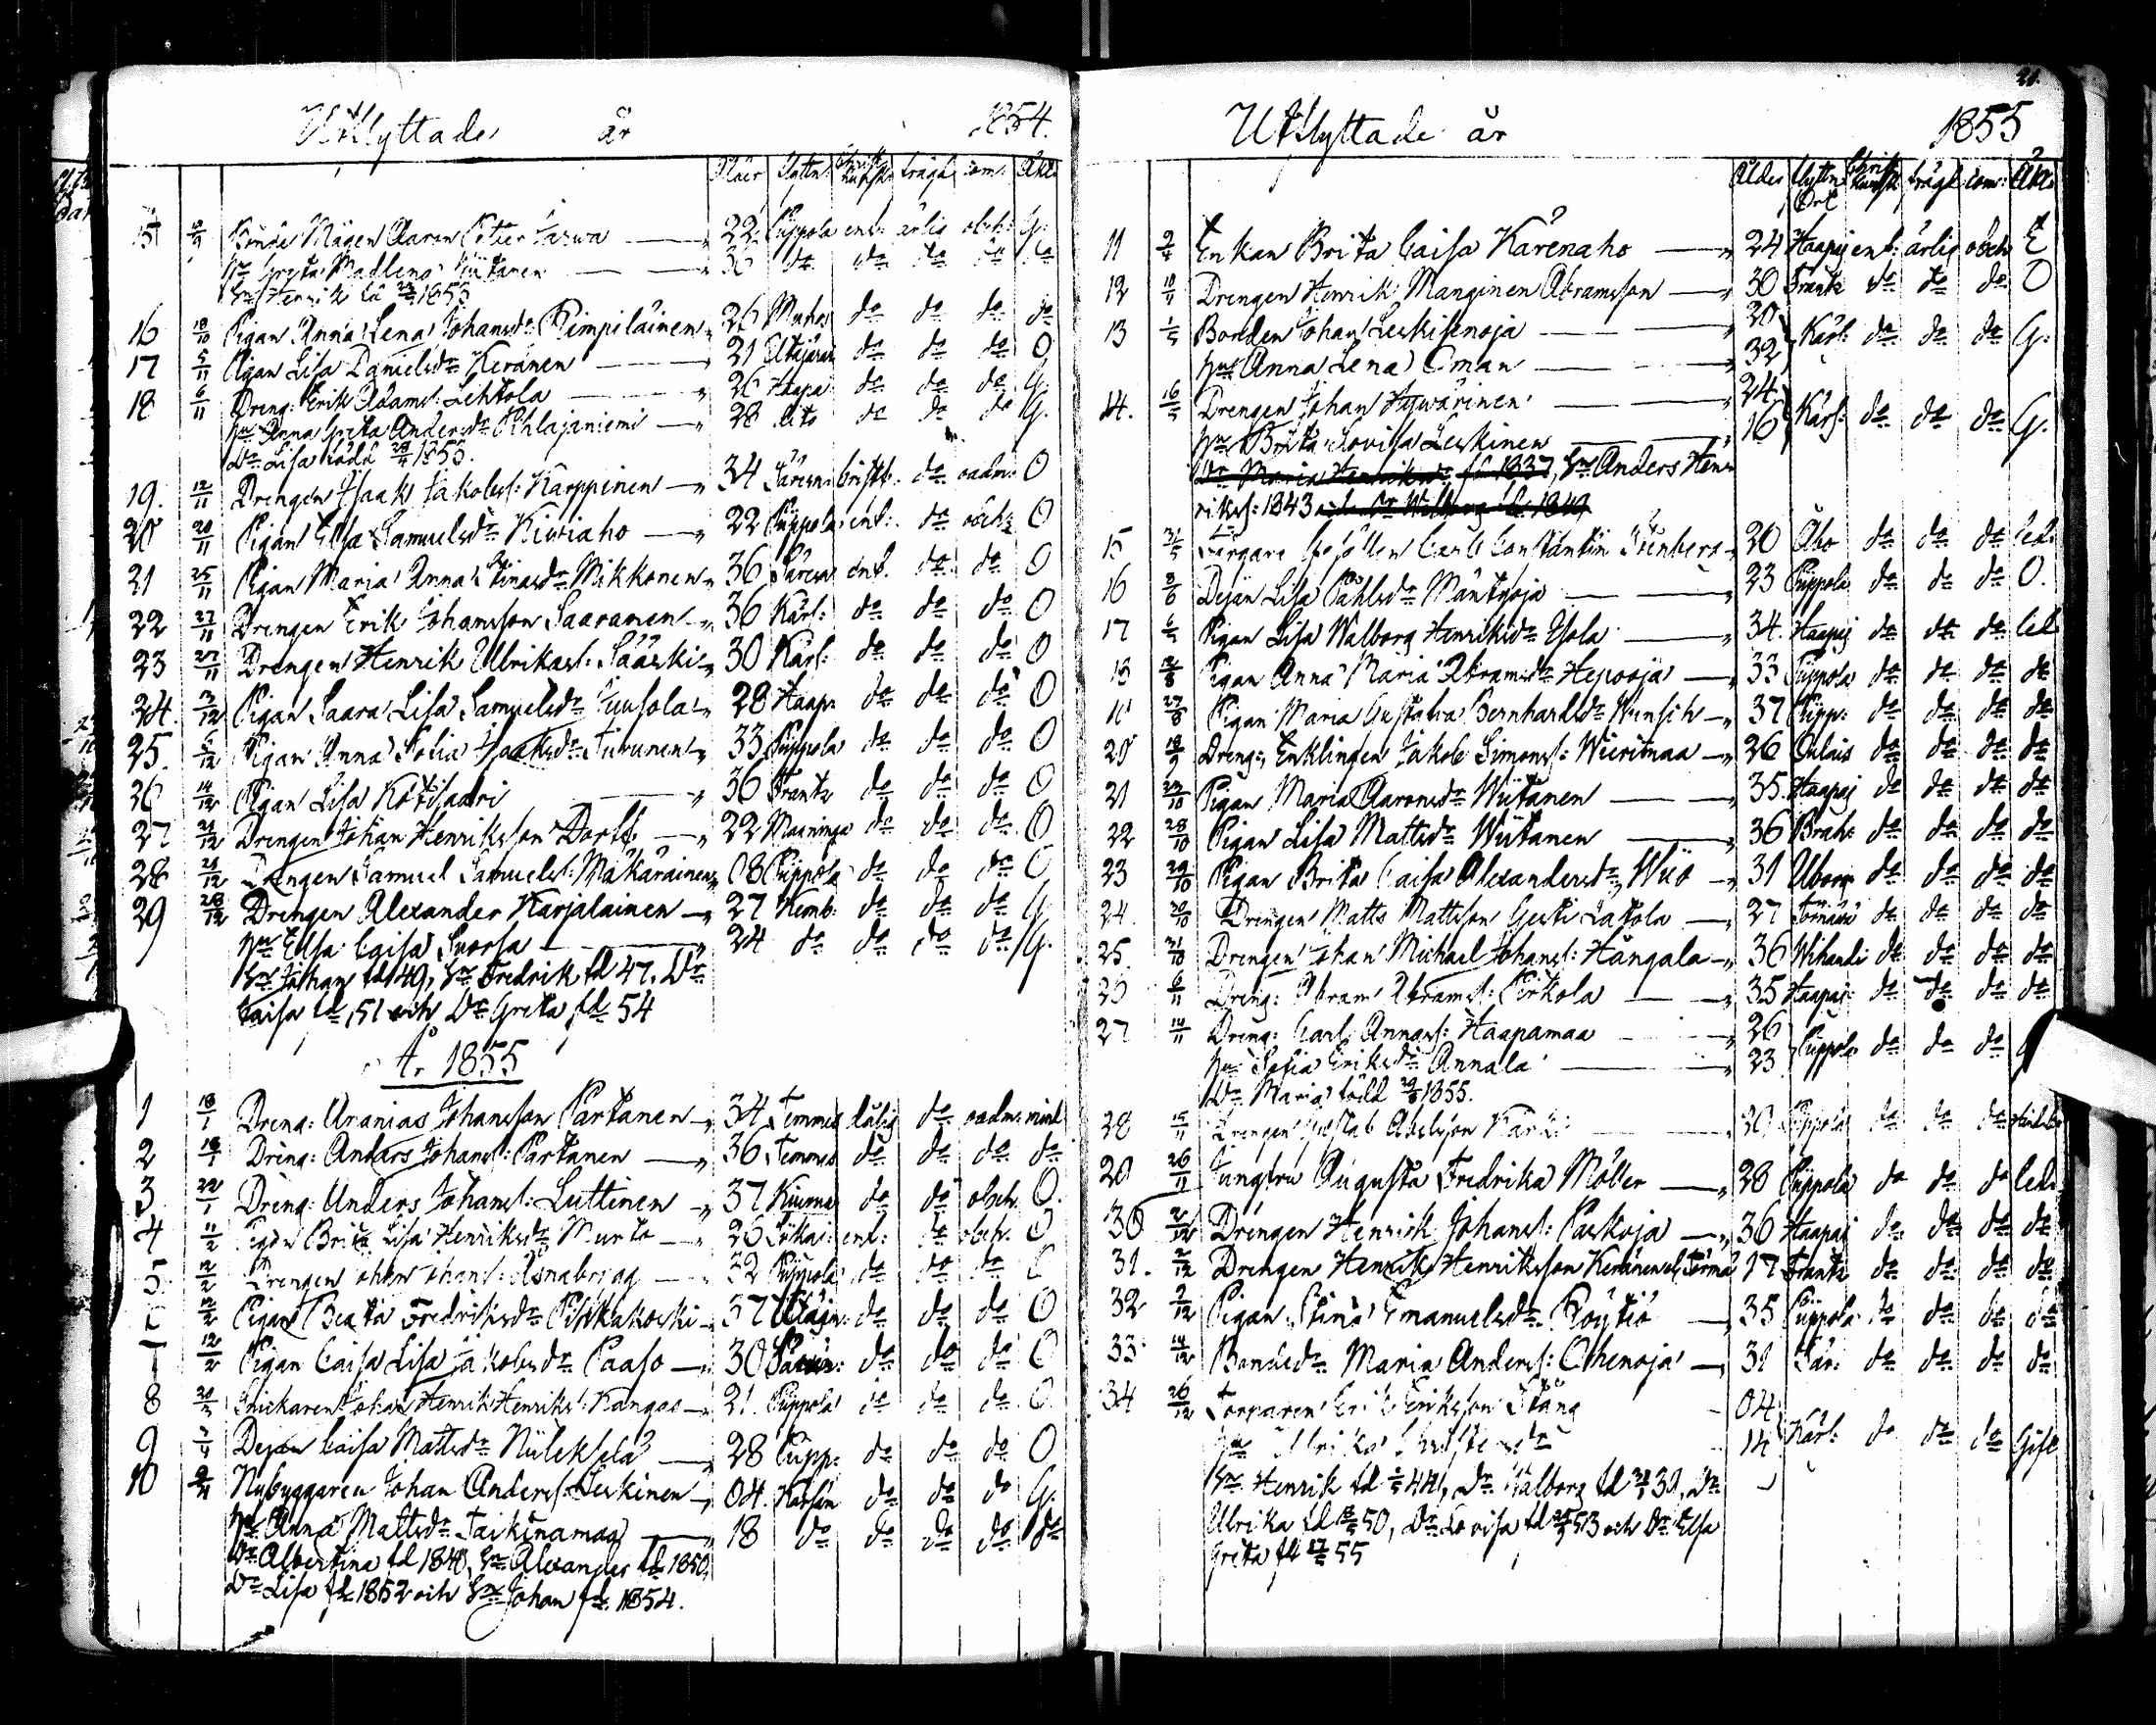 Utflyttade år 1854.
Ålder Flyttn: Christ: kunsk: frägd com: Äkt:
15 Bonde Mågen Aaron Petter Jarwa 22 Pippola enl: ärlig obeh: G.
Hu Greta Madlena Wiitanen 30 do do do do
Sn Henrik 1853
16 18/10 Pigan Anna Lena Johansdr Kimpiläinen 26 Muhos do do do do
17 5/11 Pigan Lisa Danielsdr Keränen 21 do do do O
18 6/11 Dreng: Erik Adams: Lehtola 26 Haapa: do do do G.
Hu Anna Greta Andersdr Pihlajaniemi 28 dito do do do G.
Dr Lisa född 1855.
19. 12/11 Drengen Isaak Jakobss: Karppinen 34 do oadm: O
20 20/11 Pigan Elsa Samuelsdr Kiwiaho 22 Pippola enl: do obeh: O
21 25/11 Pigan Maria Anna Stinasdr Mikkonen 36 enl. do do O
22 27/11 Drengen Erik Johansson Saaranen 36 Kärs: do do do O
23 27/11 Drengen Henrik Ulrikas: Sääski 30 Kärs: do do do O
24. 3/12 Pigan Saara Lisa Samuelsdr Juusola 28 Haap: do do do O
25. 6/12 Pigan Anna Sofia Isaksdr Turunen 33 Pippola do do do O
26 14/12 Pigan Lisa Kotisaari 36 Frantz do do do O
27 21/12 Drengen Johan Henriksson Dorff 22 Maaninga do do do O
28 21/12 Drengen Samuel Samuels: Makarainen 08 Pippola do do do O
29 28/12 Drengen Alexander Karjalainen 27 Kemb: do do do G
Hu Elsa Caisa Suorsa 24 do do do do G.
Sn Johan fd 49, Sn Fredrik fd 47. Dr
Caisa fd 51 och Dr Greta fd 54
År 1855
1 18/1 Dreng: Ananias Johansson Partanen 34 Temmes dålig do oadm: mind
2 18/1 Dreng: Anders Johans: Partanen 36 Temmes do do do do
3. 22/1 Dreng: Anders Johans: Luttinen 37 Kiurua do do obeh. O.
4 11/2 Pigan Brita Lisa Henriksdr Murto 26 enl: do obeh. O
5. 12/2 Drengen Johan Johans: 32 Pippola do do do
12/2 Pigan Beata Fredriksdr Pitkäkoski 37 do do do O
7 12/2 Pigan Caisa Lisa Jakobsdr Paaso 30 do do do O
8 20/3 Snickaren Johan Henrik Henriks: Kangas 21. Pippola do do do O.
9 3/4 Dejan Caisa Mattsdr Niileksela 28 Pipp: do do do O
10 9/4 Nybyggaren Johan Anders: Leskinen 04. Kärsäm do do do G.
Hu Anna Mattsdr Taikinamaa 18 do do do do do
Dr Albertina fd 1848, Sn Alexander fd 1850,
Dr Lisa fd 1852 och Sn Johan fd 1854.
21.
Utflyttade år 1855
Ålder Flyttn: Ort Christ: kunsk: frägd com: Äkt:
11 9/4 Enkan Brita Caisa Kärenaho 24 Haapaj enl: ärlig obeh E
12 10/4 Drengen Henrik Manginen Abramsson 30 Frantz do do do O
13 1/5 Bonden Johan Leskisenoja 20 Kärs: do do do G.
Hu Anna Lena Öman 32
14. 16/5 Drengen Johan Hywärinen 24 Kärs: do do do G.
Hu Brita Lovisa Leskinen 16
Dr Maria Henriksdr fd 1837, Sn Anders Hen-
rikss: 1843 och Dr Walborg fd 1849
15 31/5 Färgare Gesällen Carl Constantin Grönberg 20 Åbo do do do led:
16 8/6 Dejan Lisa Påhlsdr Mäntyoja 23 Pippola do do do O.
17 6/5 Pigan Lisa Walborg Henriksdr Esola 34. Haapaj do do do led
18 Pigan Anna Maria Abramsdr Hepooja 33 Pippola do do do do
27/8 Pigan Maria Gustafva Bernhardsdr Wunsch 37 Pipp: do do do do
20 18/9 Dreng: Enklingen Jakob Simons: Wierimaa 26 Oulais do do do do
21 Pigan Maria Aaronsdr Wiitanen 35. Haapaj do do do do
22 28/10 Pigan Lisa Mattsdr Wiitanen 36 Brah: do do do do
23 29/10 Pigan Brita Caisa Alexandersdr Wiio 31 Uborg do do do do
24. 30/10 Drengen Matts Mattsson Gerti Latola 27 do do do do
25. 31/10 Drengen Johan Michael Johans: Hångala 36 Wihandi do do do do
6/11 Dreng: Abram Abrams: Pirkola 35 Haapaj do do do do
27 14/11 Dreng: Carl Annas: Haapamaa 26 Pippola do do do G
Hu Sofia Eriksdr Annala 23
Dr Maria född 1855.
28 15/11 Drengen Gustaf Abelsson 30 Pippola do do do
26/11 Jungfru Augusta Fredrika Möller 28 Pippola do do do led:
30 2/12 Drengen Henrik Johans: Paskoja 36 Haapaj do do do do
31. 2/12 Drengen Henrik Henriksson Keränen 17 Frantz do do do do
32 3/12 Pigan Stina Emanuelsdr Röytiö 35 Pippola do do do do
33 14/12 Bondedr Maria Anders: Ohenoja 31 do do do do
34 26/12 Torparen Erik Eriksson Stång 04 Kärs: do do do Gift
Hu Ulrika 14
Sn Henrik fd 44, Dr Walborg fd 39, Dr
Ulrika fd 50, Dr Lovisa fd 53 och Dr Elsa
Greta fd 55